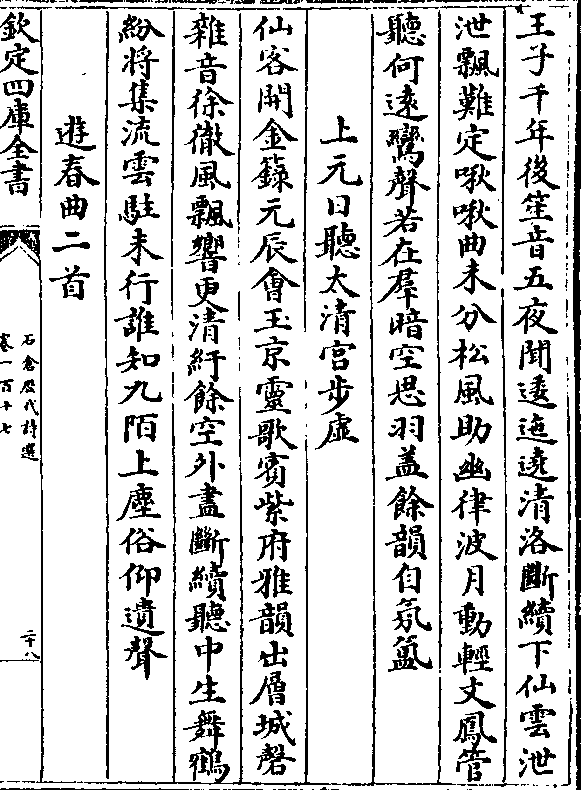 王子千年後笙音五夜聞逶迤遶清洛斷續下仙雲泄
泄飄難定啾啾曲未分松風助幽律波月動輕文鳳管
聽何遠鸞聲若在羣暗空思羽蓋餘韻自氛氳
上元日聽太清宮步虛
仙客開金籙元辰會玉京靈歌賓紫府雅韻出層城磬
雜音徐徹風飄響更清紆餘空外盡斷續聽中生舞鶴
紛將集流雲駐未行誰知九陌上塵俗仰遺聲
遊春曲二首
欽定四庫全書
石倉歴代詩選
卷一百十七
二十八